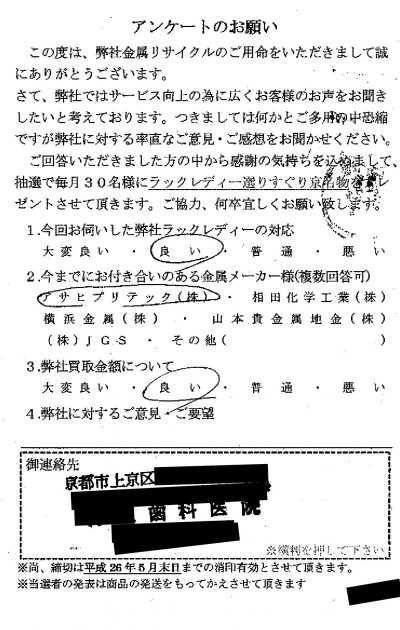 アンケートのお願い
この度は、弊社金属リサイクルのご用命をいただきまして誠
にありがとうございます。
さて、弊社ではサービス向上の為に広くお客様のお声をお聞き
したいと考えております。つきましては何かとご多用の中恐縮
ですが弊社に対する率直なご意見・ご感想をお聞かせください。
ご回答いただきました方の中から感謝の気持ちを込めまして、
抽選で毎月30名様にラックレディー選りすぐり京名物をプレ
ゼントさせて頂きます。ご協力、何卒宜しくお願い致します。
1.今回お伺いした弊社ラックレディーの対応
大変良い ・ 良い ・ 普通 ・ 悪い
2.今までにお付き合いのある金属メーカー様(複数回答可)
アサヒプリテック(株) ・ 相田化学工業(株)
横浜金属(株) ・ 山本貴金属地金(株)
(株)JGS ・ その他( )
3.弊社買取金額について
大変良い ・ 良い ・ 普通 ・ 悪い
4.弊社に対するご意見・ご要望
御連絡先
京都市上京区
歯科医院
※鎖判を押して下さい
※尚、締切は平成26年5月末日までの消印有効とさせて頂きます。
※当選者の発表は商品の発送をもってかえさせて頂きます